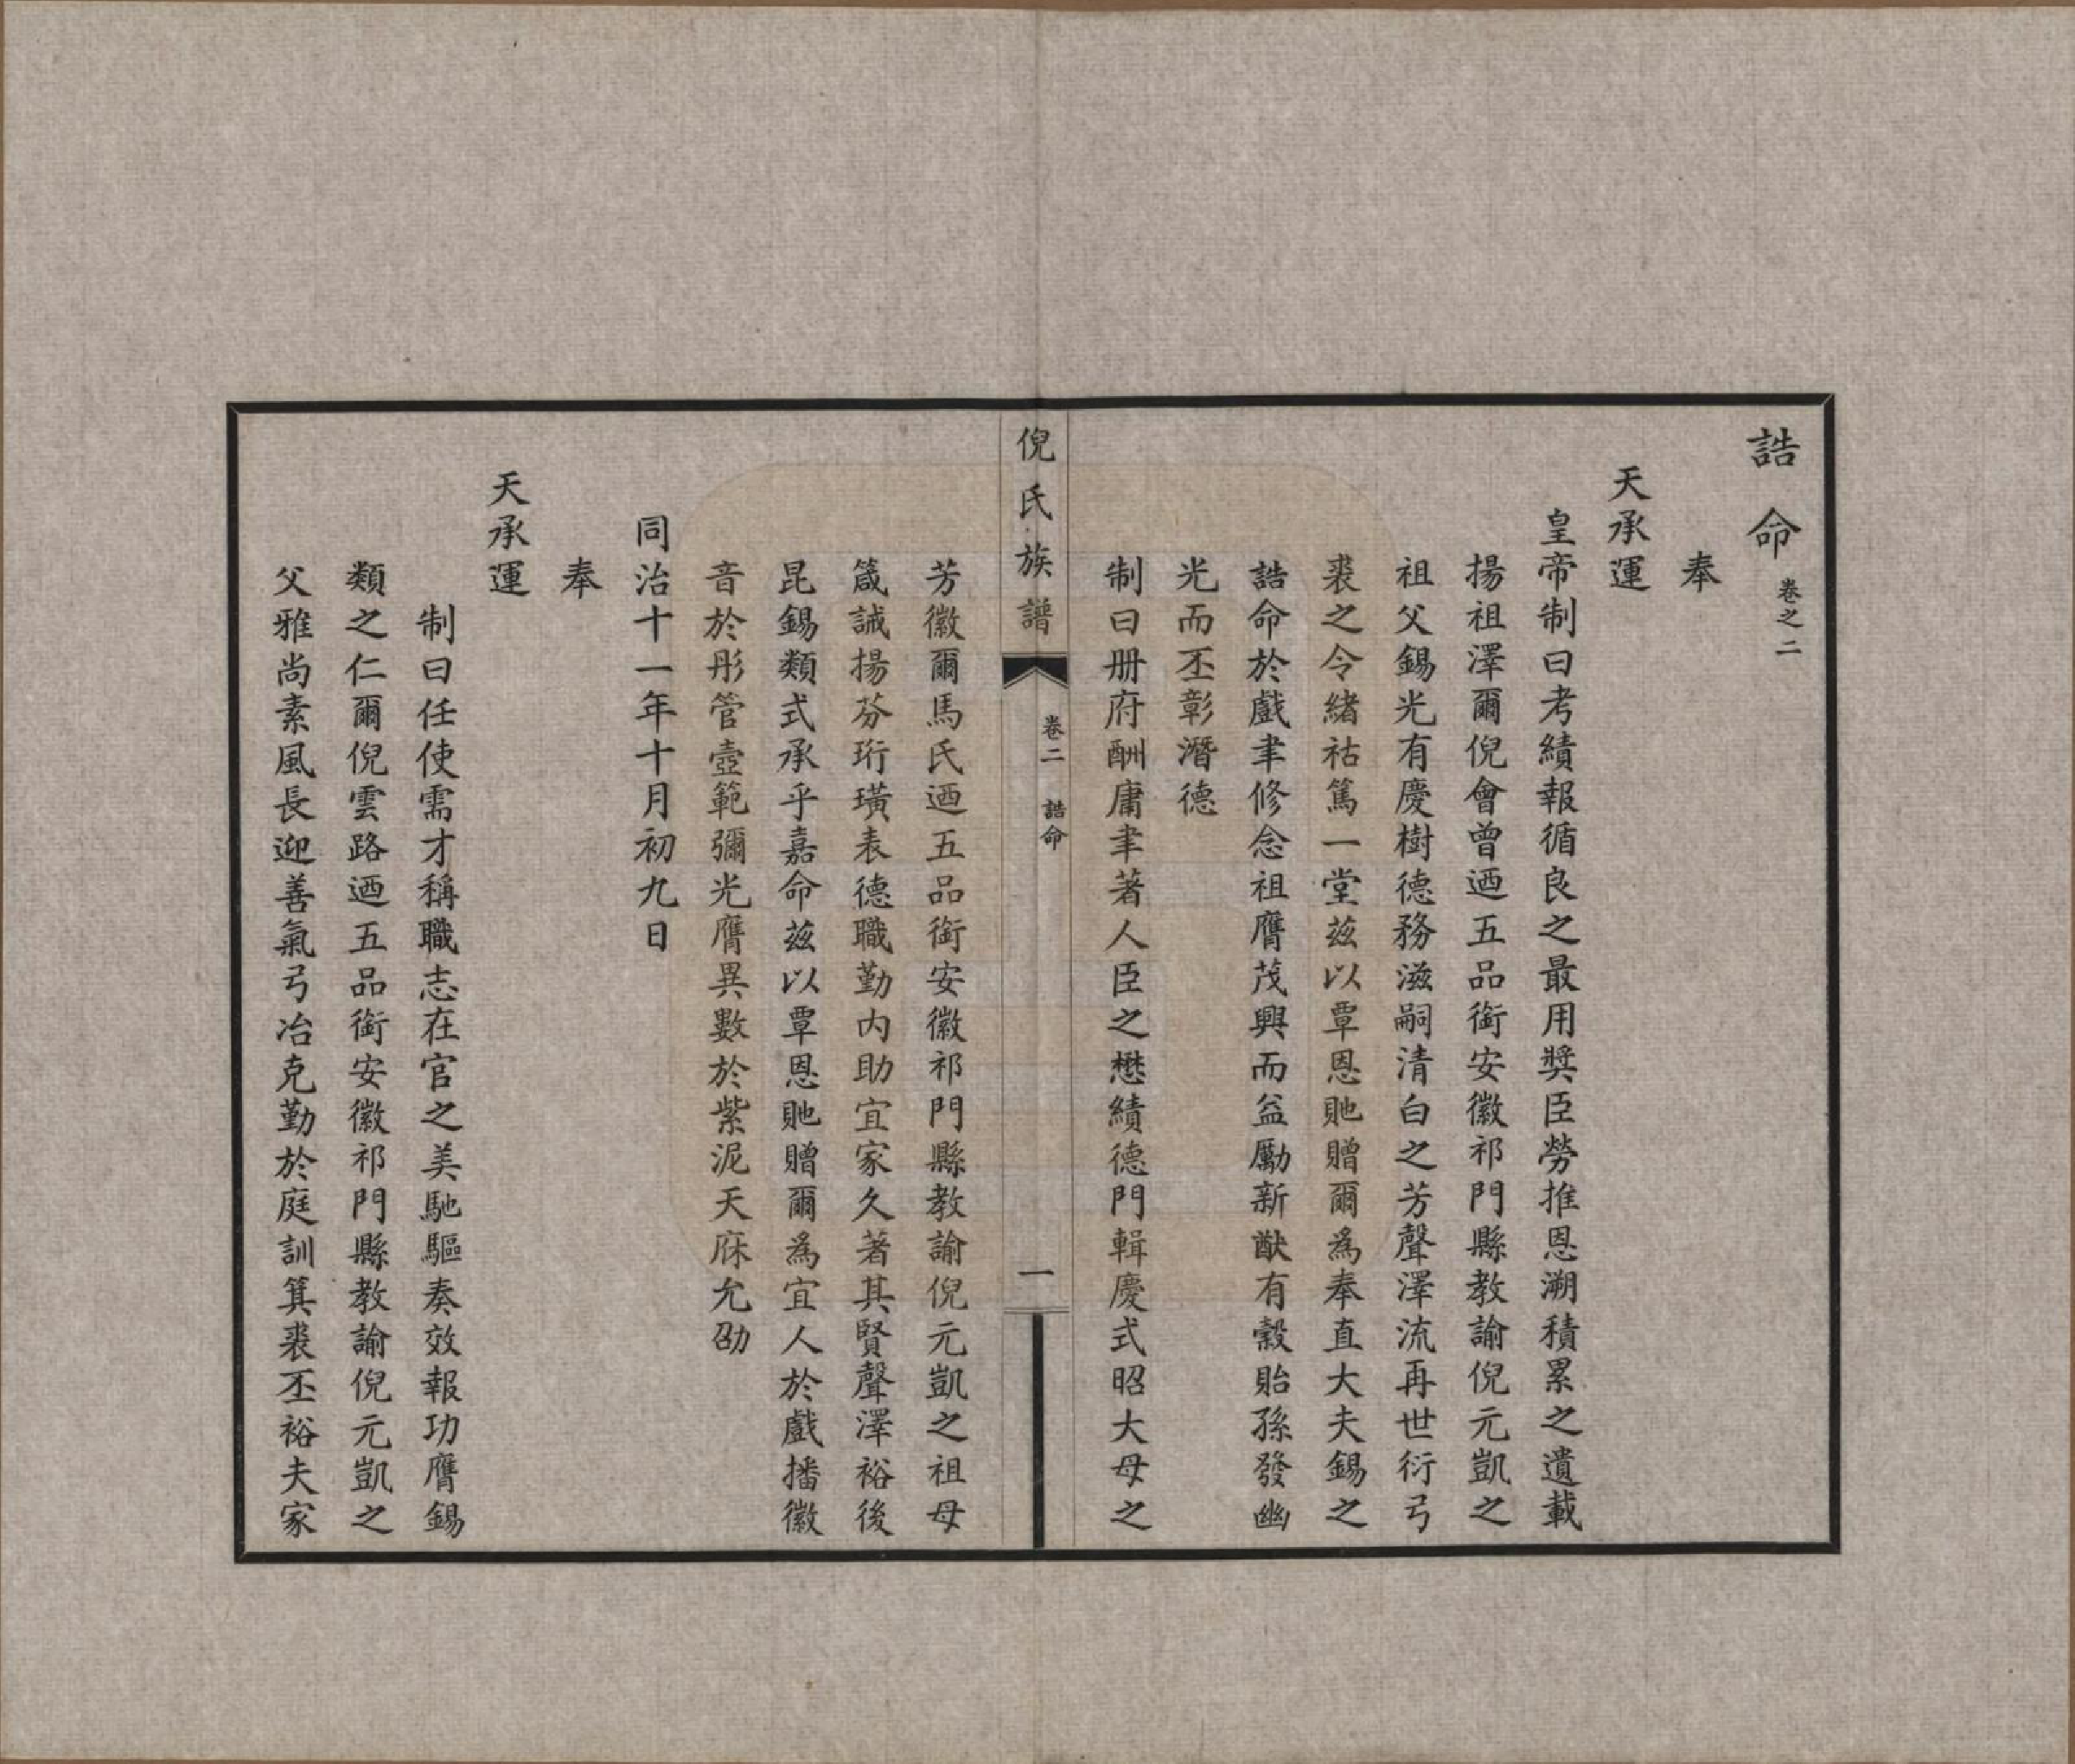 誥命 卷之二
奉
天承運
皇帝制曰考績報循良之最用奬臣勞推恩溯積累之遺載
揚祖澤爾倪會曾迺五品銜安徽祁門縣教諭倪元凱之
祖父錫光有慶樹德務滋嗣清白之芳聲澤流再世衍弓
裘之令緒祜篤一堂茲以覃恩貤贈爾爲奉直大夫錫之
誥命於戲聿修念祖膺茂興而益勵新猷有穀貽孫發幽
光而丕彰潛德
制曰册府酬庸聿著人臣之懋績德門輯慶式昭大母之
倪氏族譜 卷二 誥命 一
芳徽爾馬氏迺五品銜安徽祁門縣教諭倪元凱之祖母
箴誡揚芬珩璜表德職勤内助宜家久著其賢聲澤裕後
昆錫類式承乎嘉命茲以覃恩貤贈爾爲宜人於戲播徽
音於彤管壼範彌光膺異數於紫泥天庥允劭
同治十一年十月初九日
奉
天承運
制曰任使需才稱職志在官之美馳驅奏效報功膺錫
類之仁爾倪雲路迺五品銜安徽祁門縣教諭倪元凱之
父雅尚素風長迎善氣弓冶克勤於庭訓箕裘丕裕夫家